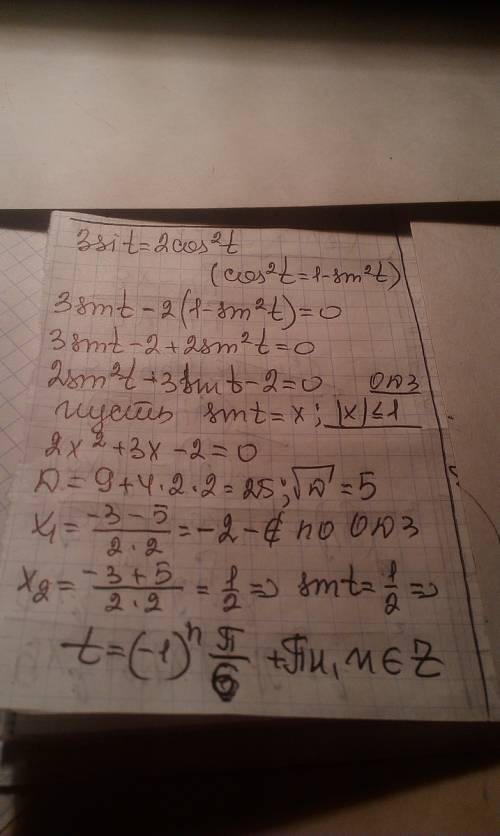 3sit=2cos²t
(cos²t=1-sin²t)
3sint-2(1-sin²t)=0
3sint-2+2sin²t=0
2sin²t+3sint-2=0 ОДЗ
пусть sint=x; |x|≤1
2x²+3x-2=0
D=9+4·2·2=25; √D=5
x₁=(-3-5)/(2·2)=-2-∉ по ОДЗ
x₂=(-3+5)/(2·2)=1/2=> sint=1/2=>
t=(-1)ⁿ π/6 +πn, n∈Z